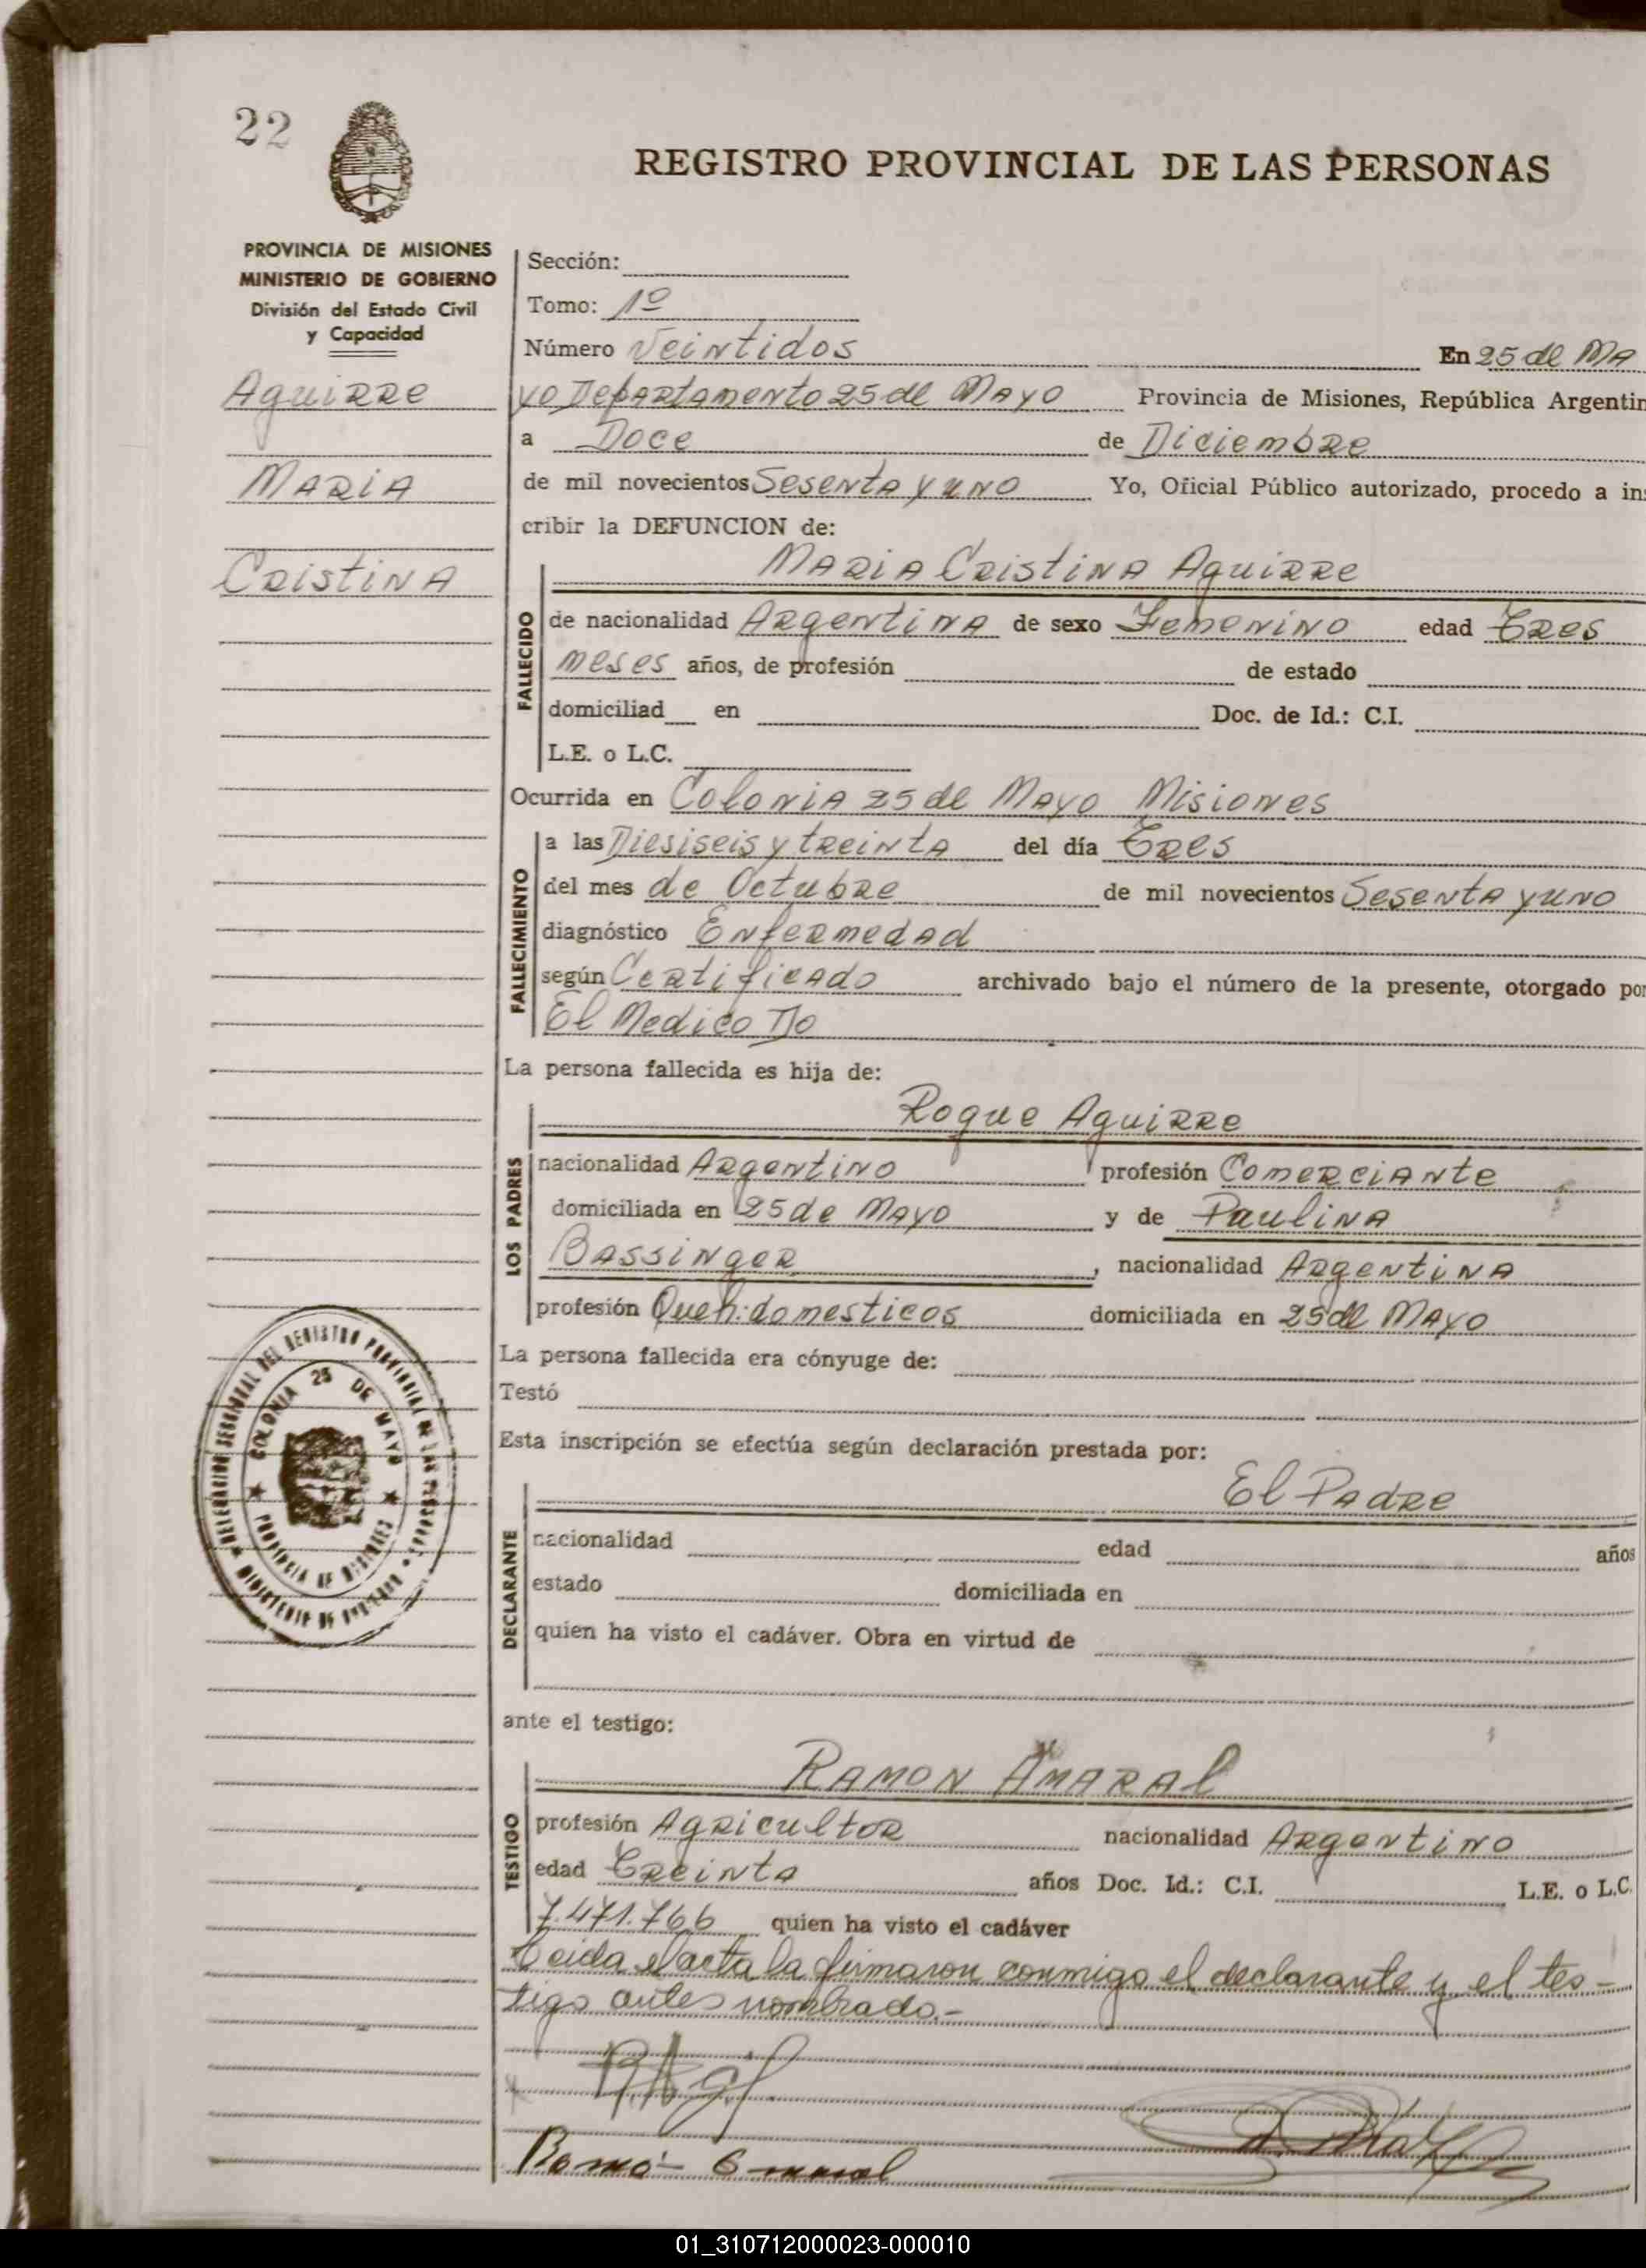 22
REGISTRO PROVINCIAL DE LAS PERSONAS
PROVINCIA DE MISIONES
MINISTERIO DE GOBIERNO
División del Estado Civil
y Capacidad
Aguirre
Maria
Cristina
Sección:
Tomo: 1º
Número Veintidos En 25 de Ma
yo Departamento 25 de Mayo Provincia de Misiones, República Argentin
a Doce de Diciembre
de mil novecientos Sesenta y uno Yo, Oficial Público autorizado, procedo a ins
cribir la DEFUNCION de:
Maria Cristina Aguirre
FALLECIDO
de nacionalidad Argentina de sexo Femenino edad Tres
meses años, de profesión de estado
domiciliad en Doc. de Id.: C.I.
L.E. o L.C.
Ocurrida en Colonia 25 de Mayo Misiones
FALLECIMIENTO
a las Diesiseis y treinta del día Tres
del mes de Octubre de mil novecientos Sesenta y uno
diagnóstico Enfermedad
según Certificado archivado bajo el número de la presente, otorgado por
El Medico
La persona fallecida es hija de:
Roque Aguirre
LOS PADRES
nacionalidad Argentino profesión Comerciante
domiciliada en 25 de Mayo y de Paulina
Bassinger, nacionalidad Argentina
profesión Queh. domesticos domiciliada en 25 de Mayo
La persona fallecida era cónyuge de:
Testó
Esta inscripción se efectúa según declaración prestada por:
El Padre
DECLARANTE
nacionalidad edad años
estado domiciliada en
quien ha visto el cadáver. Obra en virtud de
ante el testigo:
Ramon Amaral
TESTIGO
profesión Agricultor nacionalidad Argentino
edad Treinta años Doc. Id.: C.I. L.E. o L.C.
7.471.766 quien ha visto el cadáver
Leida el acta la firmaron conmigo el declarante y el tes-
tigo antes nombrado.-
DELEGACION SECCIONAL DEL REGISTRO PROVINCIAL DE LAS PERSONAS
MINISTERIO DE GOBIERNO
COLONIA 25 DE MAYO
PROVINCIA DE MISIONES
01_310712000023-000010